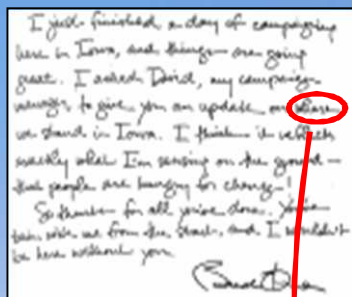 I just finished a day of campaigning
here in Iowa, and things are going
great. I asked David, my campaign
manager to give you an update on where
we stand in Iowa. I think it reflects
exactly what I'm sensing on the ground —
that people are hungry for change!
So thanks for all you've done. You've
been with me from the start, and I wouldn't
be here without you.